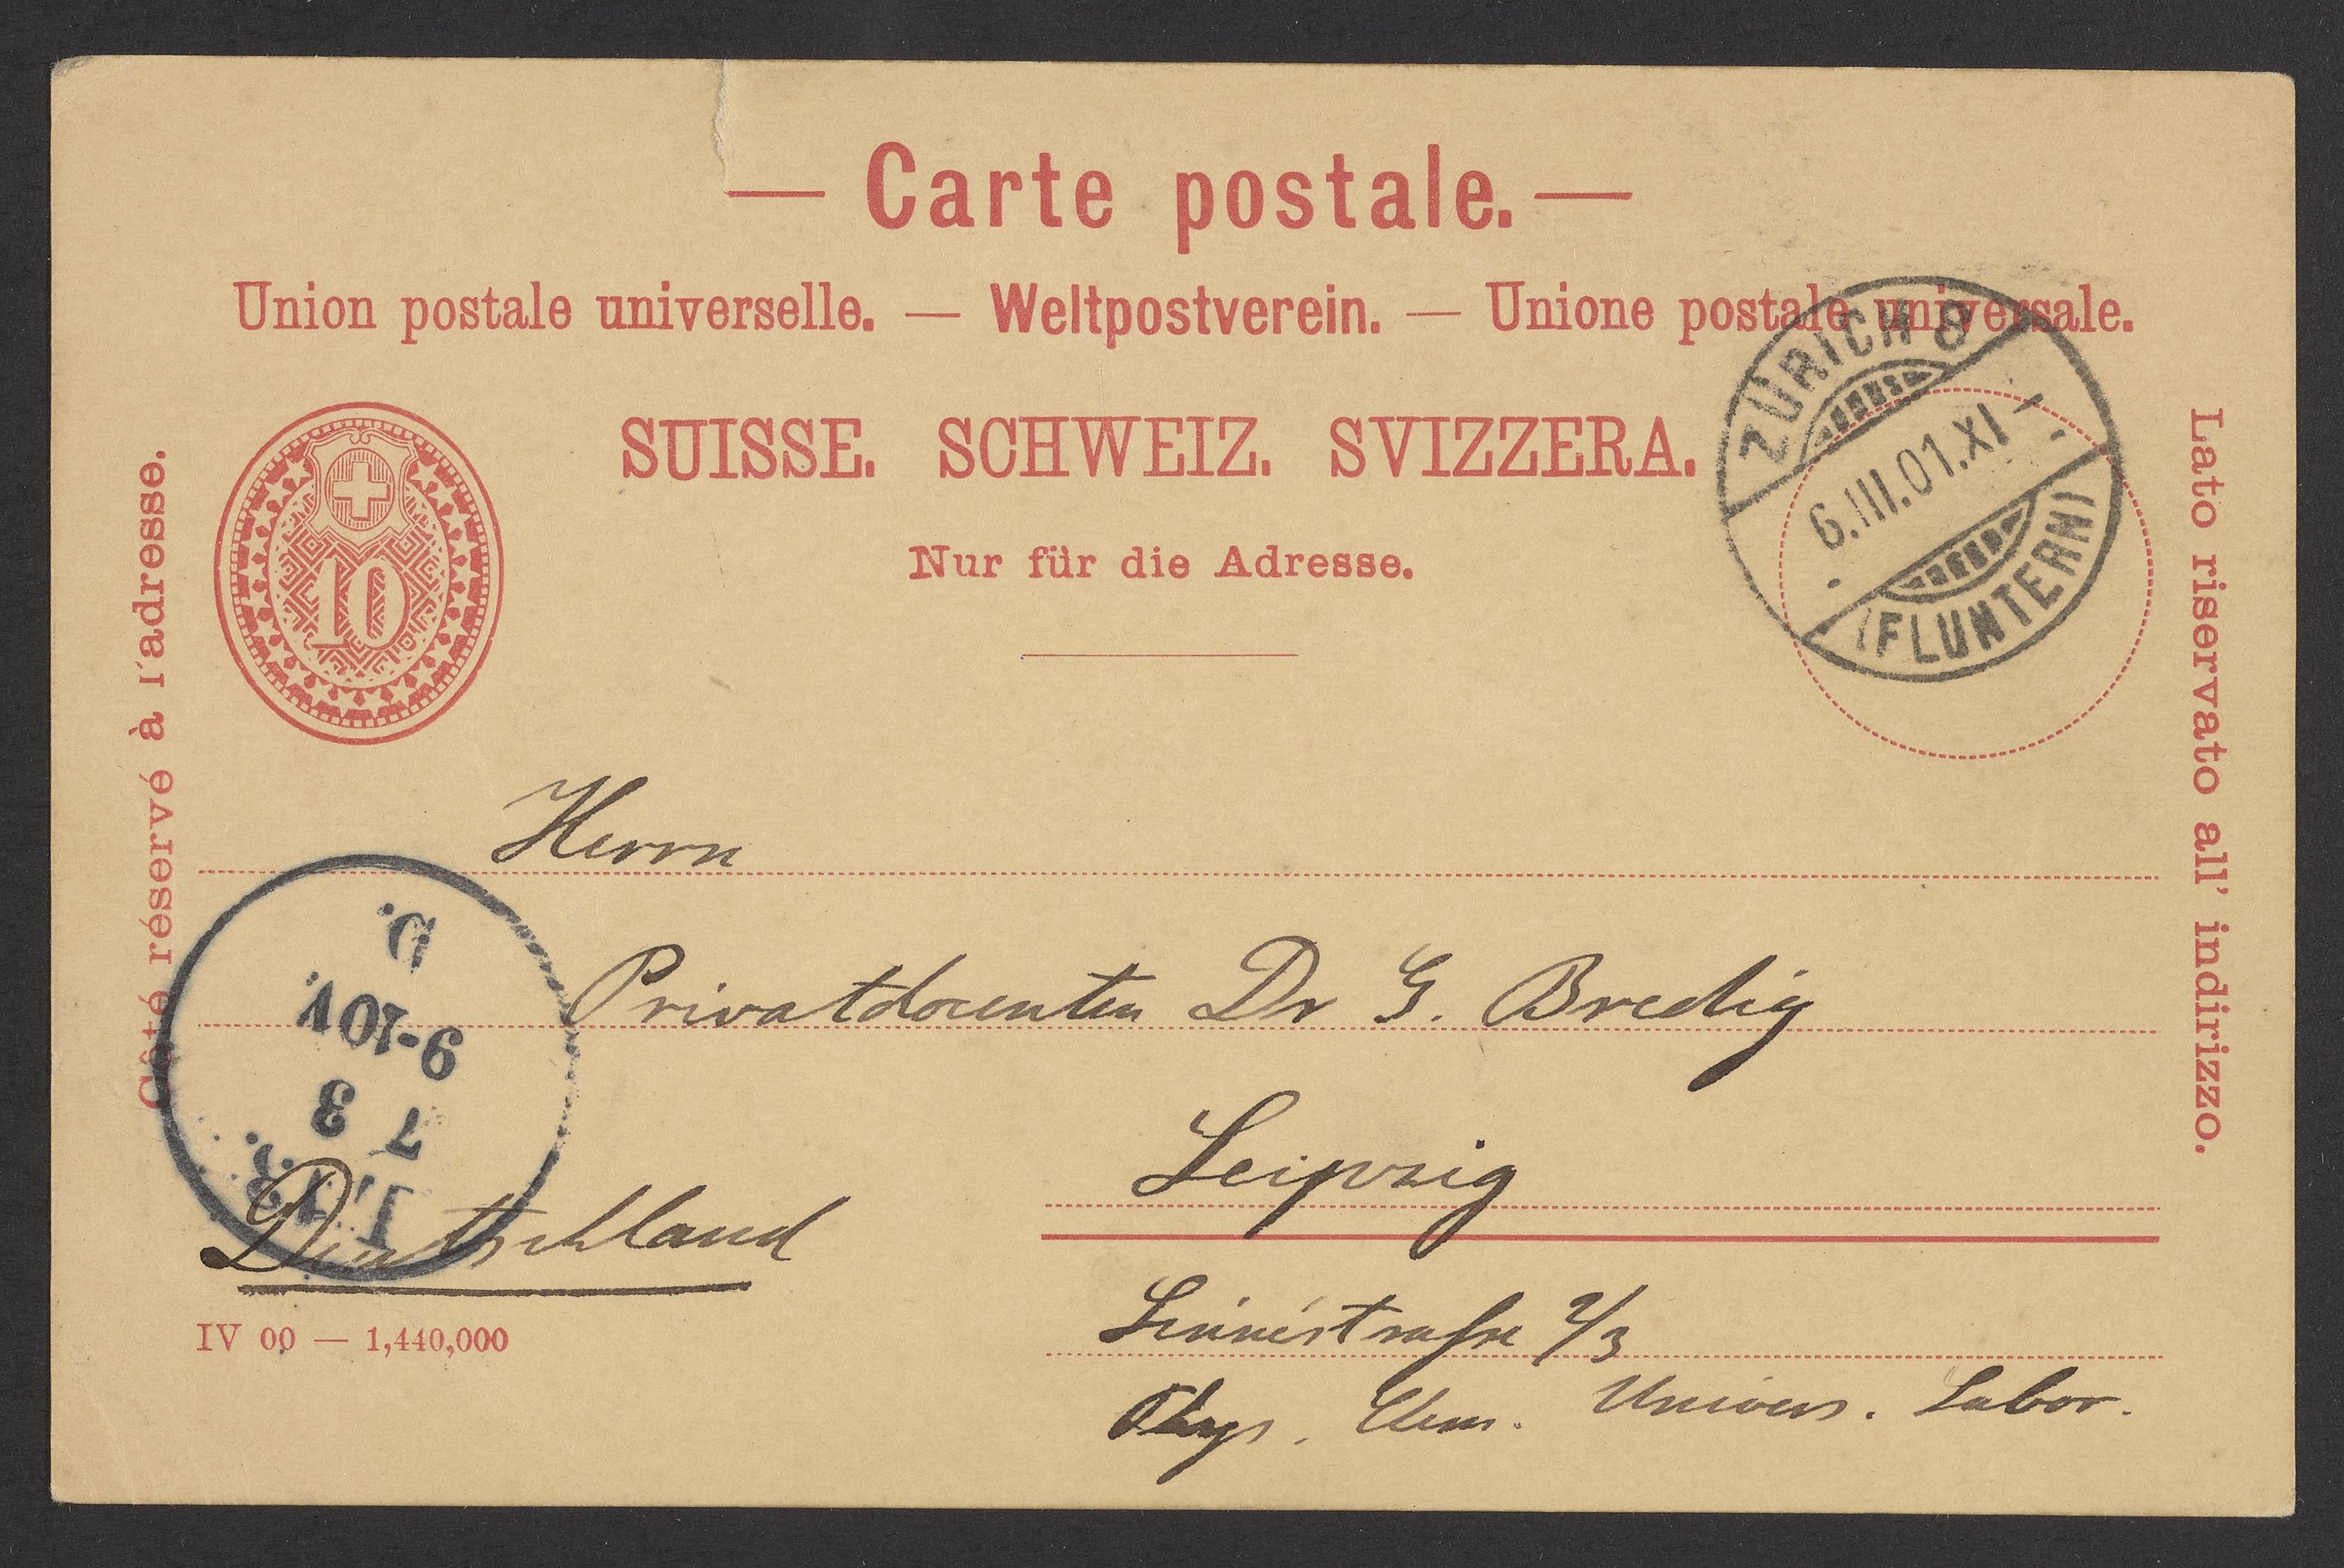 — Carte postale. —
Union postale universelle. — Weltpostverein. — Unione postale universale.
SUISSE. SCHWEIZ. SVIZZERA.
Nur für die Adresse.
Côté réservé à l'adresse.
Lato riservato all' indirizzo.
10
ZÜRICH 8
6.III.01.XI
(FLUNTERN)
Herrn
Privatdocenten Dr G. Bredig
Leipzig
Deutschland
Linnéstrasse 2/3
Phys. Chem. Univers. Labor.
7 3
9-10V.
D.
IV 00 — 1,440,000